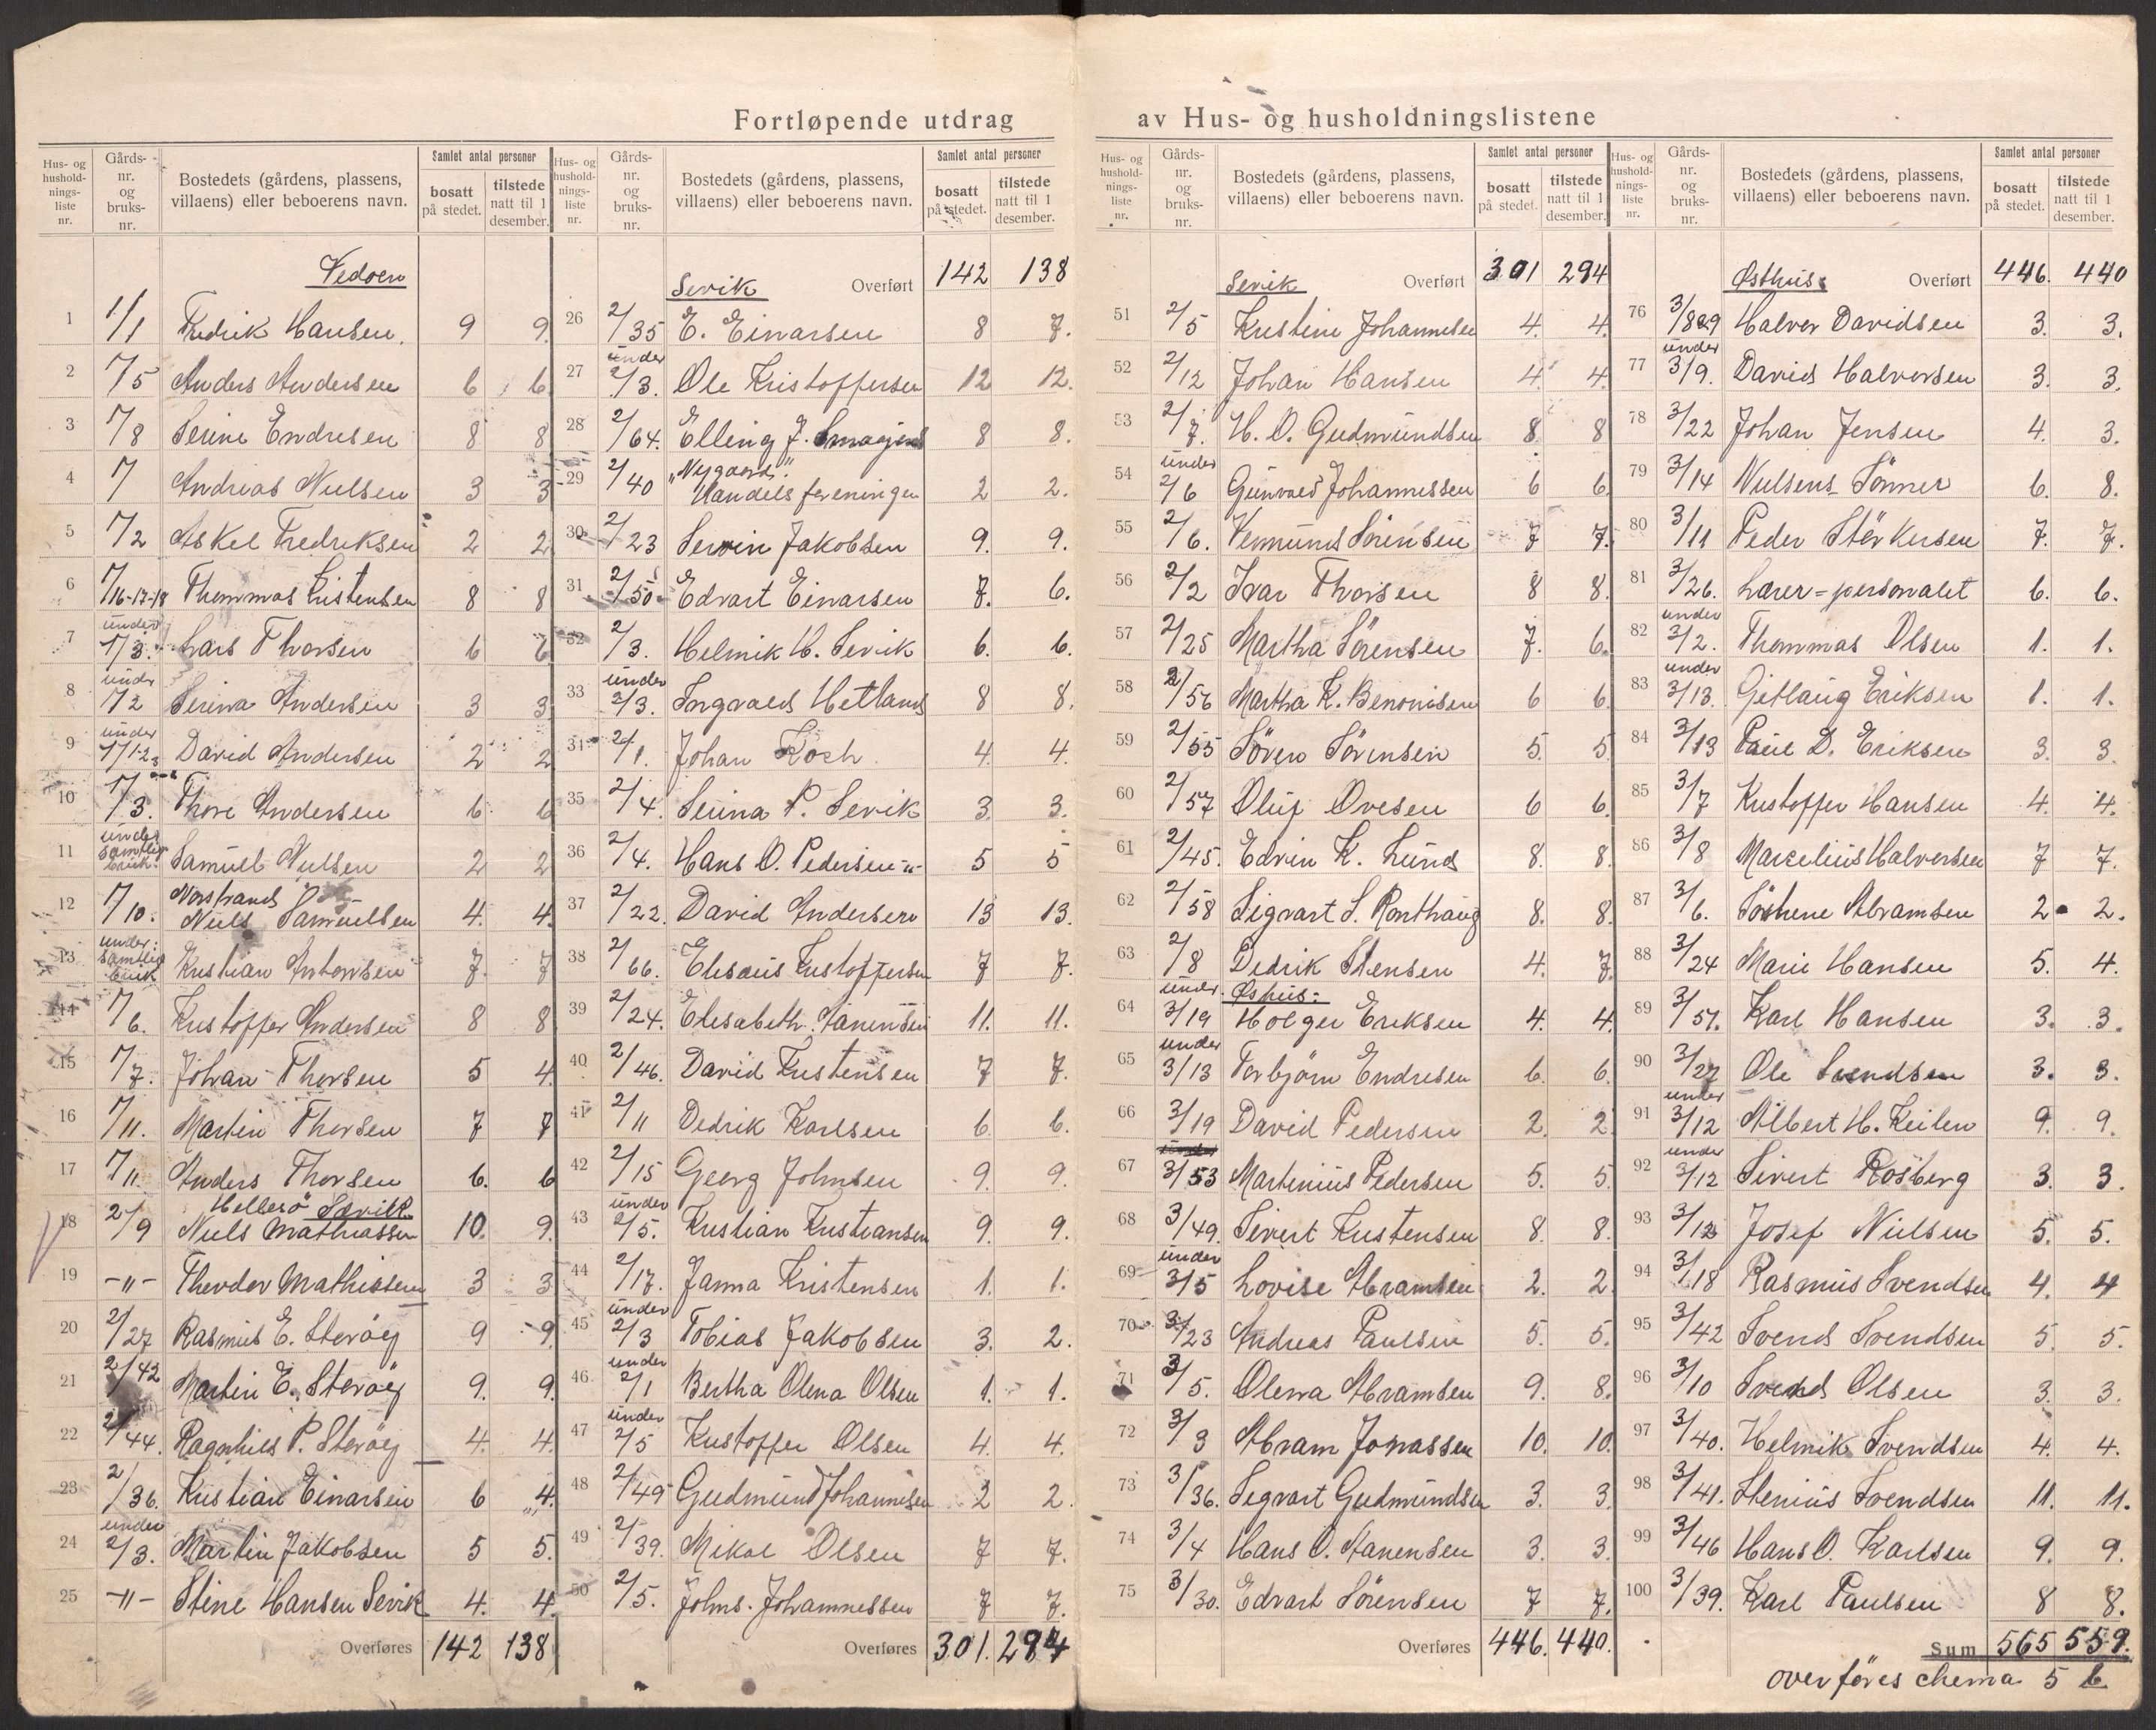 Fortløpende utdrag av Hus- og husholdningslistene
Hus- og husholdnings-liste nr. | Gårds-nr. og bruks-nr. | Bostedets (gårdens, plassens, villaens) eller beboerens navn. | Samlet antal personer | bosatt på stedet. | tilstede natt til 1 desember.
Vedoen
1 1/1 Fredrik Hansen. 9 9.
2 1/5 Anders Andersen 6 6
3 1/8 Serine Endresen 8 8
4 1/ Andreas Nielsen 3 3
5 1/2 Askel Fredriksen 2 2
6 1/16-17-18 Thommas Kristensen 8 8
7 under 1/3. Lars Thorsen 6 6
8 under 1/2 Serina Andersen 3 3
9 under 1/1-2-3 David Andersen 2 2
10 1/3. Thore Andersen 6 6
11 under samtlig bruk. Samuel Nielsen 2 2
12 1/10. Norstrand Niels Samuelsen 4. 4.
13 under: samtlig bruk Kristian Antonsen 7. 7
14 1/6. Kristoffer Andersen 8 8
15 1/7. Johan Thorsen 5 4.
16 1/11. Martin Thorsen 7 7
17 1/11 Anders Thorsen 6. 6
Hellesö Sævik
18 2/9 Niels Mathiassen 10. 9.
19 -"- Theodor Mathissen 3 3
20 2/27 Rasmus E. Steröy 9 9.
21 2/42 Martin E. Steröy 9. 9.
22 2/44. Ragnhild P. Steröy 4. 4.
23 2/36. Kristian Einarsen 6 4.
24 under 2/3. Martin Jakobsen 5 5.
25 -"- Stine Hansen Sevik 4. 4.
Overføres 142 138
Hus- og husholdnings-liste nr. | Gårds-nr. og bruks-nr. | Bostedets (gårdens, plassens, villaens) eller beboerens navn. | Samlet antal personer | bosatt på stedet. | tilstede natt til 1 desember.
Sevik Overført 142 138
26 2/35 E. Einarsen 8 7.
27 under 2/3. Ole Kristoffersen 12 12.
28 2/64. Elling J. 8 8.
29 2/40 "Nygaard" Handelsforeningen 2 2.
30 2/23 Servin Jakobsen 9. 9.
31 2/50 Edvart Einarsen 7. 6.
32 2/3. Helmik H. Sevik 6. 6.
33 under 2/3. Ingvald Hetland 8 8.
34 2/1. Johan Koch. 4. 4.
35 2/4. Serina P. Sevik 3. 3.
36 2/4. Hans O. Pedersen 5 5
37 2/22. David Andersen 13 13.
38 2/66. Elisæus Kristoffersen 7 7.
39 2/24. Elisabeth Aanensen 11. 11.
40 2/46. David Kristensen 7 7.
41 2/11 Dedrik Karlsen 6. 6.
42 2/15 Georg Johnsen 9. 9.
43 under 2/5. Kristian Kristiansen 9. 9.
44 2/17. Janna Kristensen 1. 1.
45 under 2/3 Tobias Jakobsen 3. 2.
46 under 2/1 Bertha Olena Olsen 1. 1.
47 under 2/5 Kristoffer Olsen 4. 4.
48 2/49 Gudmund Johannesen 2 2.
49 2/39. Mikal Olsen 7 7.
50 2/5. Johns. Johannessen 7 7.
Overføres 301. 294
Hus- og husholdnings-liste nr. | Gårds-nr. og bruks-nr. | Bostedets (gårdens, plassens, villaens) eller beboerens navn. | Samlet antal personer | bosatt på stedet. | tilstede natt til 1 desember.
Sevik Overført 301 294
51 2/5 Kristine Johannesen 4. 4.
52 2/12 Johan Hansen 4. 4.
53 2/7. H. O. Gudmundsen 8 8
54 under 2/6 Gunvald Johannessen 6 6.
55 2/6. Vermund Sörensen 7 7.
56 2/2 Ivar Thorsen 8 8.
57 2/25 Martha Sörensen 7. 6.
58 2/56 Martha K. Benonisen 6 6
59 2/55 Sören Sörensen 5. 5
60 2/57 Oluf Ovesen 6 6.
61 2/45. Edvin K. Lund 8. 8.
62 2/58 Sigvart S. Ronthaug 8. 8.
63 2/8 Dedrik Stensen 4. 7.
Øshus:
64 under 3/19 Holger Eriksen 4. 4.
65 under 3/13 Torbjörn Endresen 6. 6.
66 3/19 David Pedersen 2. 2
67 3/53 Martinius Pedersen 5. 5
68 3/49. Sivert Kristensen 8. 8.
69 under 3/5 Lovise Abramsen 2. 2.
70 3/23 Andreas Paulsen 5. 5.
71 3/5. Olena Abramsen 9. 8.
72 3/3 Abram Jonassen 10. 10.
73 3/36. Segvart Gudmundsen 3. 3.
74 3/4 Hans O. Aanensen 3. 3.
75 3/30. Edvart Sörensen 7 7.
Overføres 446. 440.
Hus- og husholdnings-liste nr. | Gårds-nr. og bruks-nr. | Bostedets (gårdens, plassens, villaens) eller beboerens navn. | Samlet antal personer | bosatt på stedet. | tilstede natt til 1 desember.
Østhus: Overført 446. 440
76 3/8&9 Halver Davidsen 3. 3.
77 under 3/9. David Halversen 3. 3.
78 3/22 Johan Jensen 4. 3.
79 3/14 Nielsens Sönner 6. 8.
80 3/11 Peder Störkersen 7. 7.
81 3/26. Lærer=personalet 6. 6.
82 under 3/2. Thommas Olsen 1. 1.
83 under 3/13. Gitlaug Eriksen 1. 1.
84 3/13 Paul D. Eriksen 3. 3.
85 3/7 Kristoffer Hansen 4. 4.
86 3/8 Marselius Halversen 7 7.
87 3/6. Abramsen 2. 2.
88 3/24 Marie Hansen 5. 4.
89 3/51. Karl Hansen 3. 3.
90 3/27 Ole Svendsen 3. 3.
91 under 3/12 Albert H. Keilen 9. 9.
92 under 3/12 Sivert Rosberg 3. 3.
93 3/12 Josef Nielsen 5. 5.
94 3/18 Rasmus Svendsen 4. 4
95 3/42 Svend Svendsen 5. 5.
96 3/10 Svend Olsen 3. 3.
97 3/40. Helmik Svendsen 4. 4.
98 3/41. Stenius Svendsen 11. 11.
99 3/46 Hans O. Karlsen 9. 9.
100 3/39. Karl Paulsen 8 8.
Sum 565 559.
overföres chema 5 b.